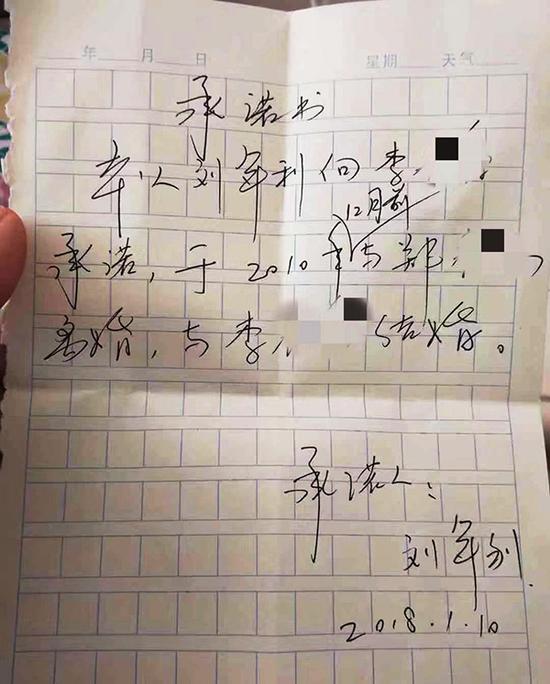 年 月 日 星期 天气
承诺书
本人刘年利向李
12月前
承诺，于2010年与郑，
离婚，与李结婚。
承诺人：
刘年利
2018.1.10